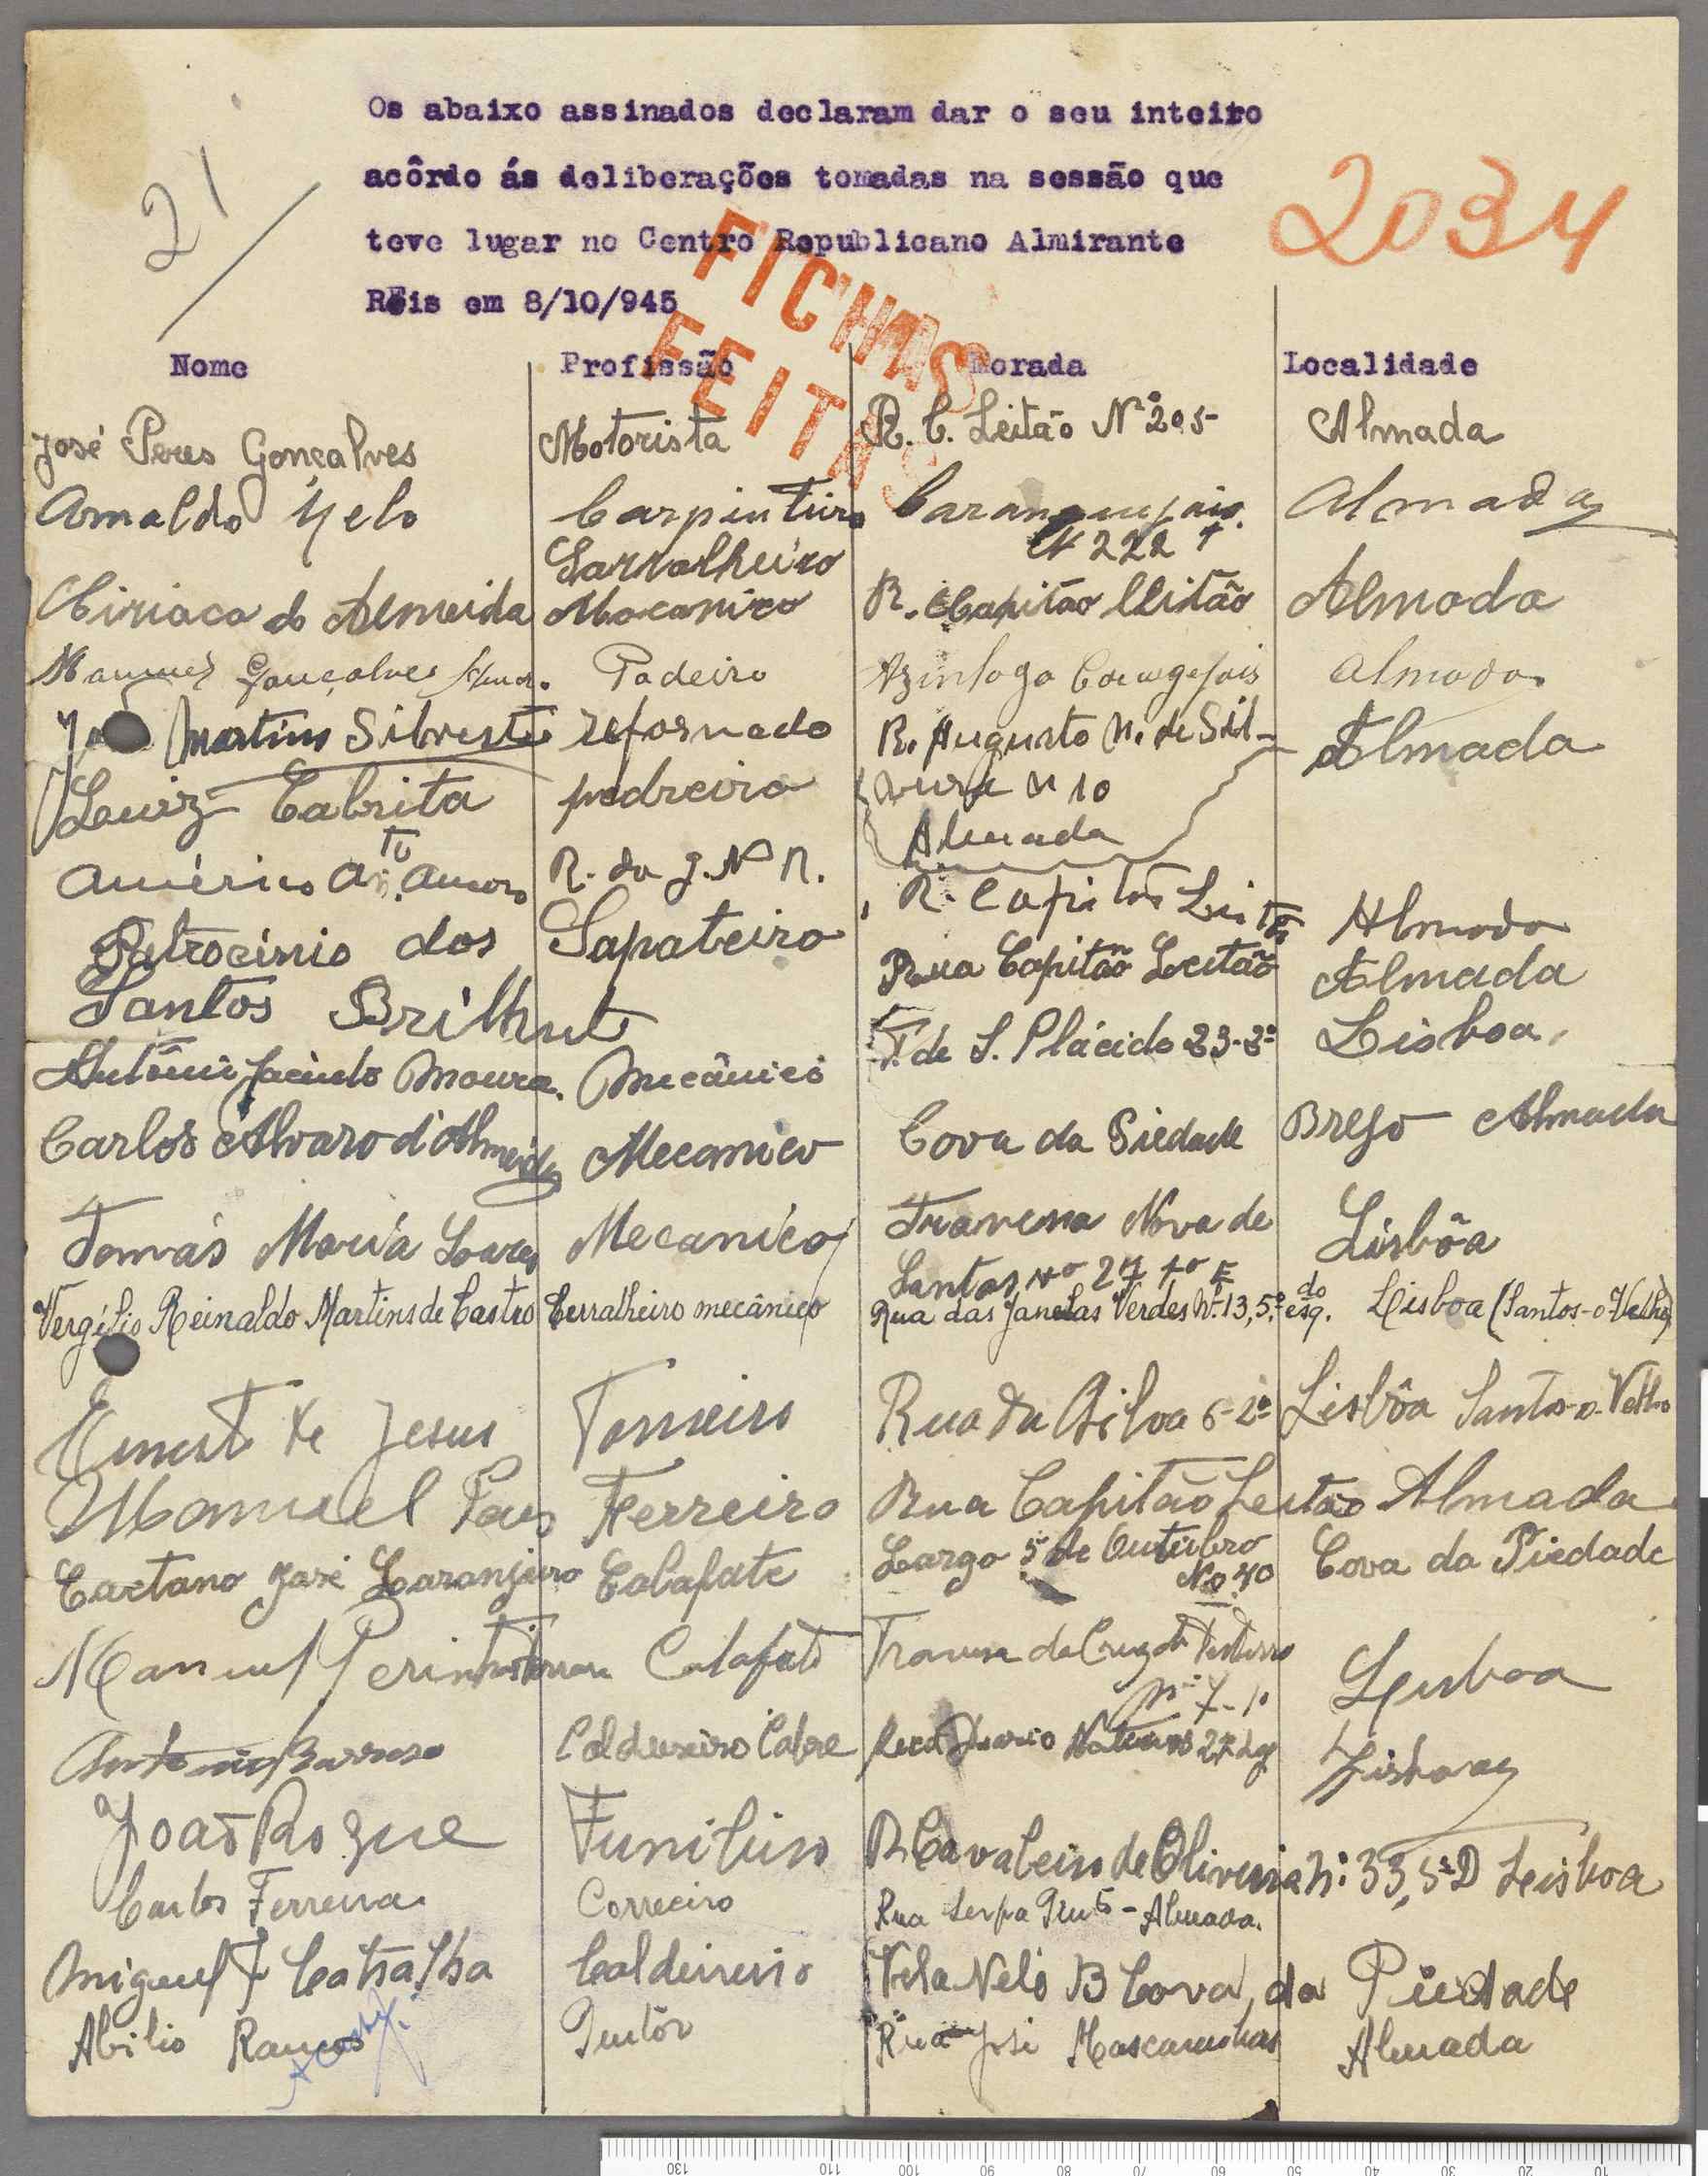 Os abaixo assinados declaram dar o seu inteiro
acôrdo ás deliberações tomadas na sessão que
21
2034
teve lugar no Centro Republicano Almirante
Reis em 8/10/945
FICHAS
FEITAS
Nome Profissão Morada Localidade
José Peres Gonçalves Motorista R. C. Leitão Nº 205 Almada
Arnaldo Melo Carpinteiro Caranguejais Almada
Nº 222 1
Sarralheiro
Ciriaco de Almeida Mocanico R. Capitão Leitão Almada
Manuel Gonçalves Padeiro Azinhaga Almada
Martins Silvestre reformado R. Augusto M. de Sil- Almada
Luiz Cabrita pedreiro nº 10
Almada
Américo R. da G. N. R. R. Capitão Leitão Almada
Patrocinio dos Sapateiro Rua Capitão Leitão Almada
Santos Brilhante
António Jacinto Moura. Mecânico T. de S. Plácido 23-2º Lisboa
Carlos Alvaro d'Almeida Mecanico Cova da Piedade Brejo Almada
Tomás Maria Soares Mecanico Travessa Nova de Lisbôa
Santos nº 27 1º E
Vergílio Reinaldo Martins de Castro Cerralheiro mecânico Rua das Janelas Verdes Nº 13, 5.º esq. do Lisboa (Santos-o-Velho)
Ernesto de Jesus Torneiro Rua da Silva 6-2º Lisbôa Santos-o-Velho
Manuel Pais Ferreiro Rua Capitão Leitão Almada
Caetano José Laranjeiro Calafate Largo 5 de Outubro Cova da Piedade
Nº 40
Manuel Calafate Travessa da Cruz do Desterro Lisboa
nº 7-1º
Antonio Barroso Caldeireiro Cobre 27 Lisboa
João Roque Funileiro R Cavaleiro de Oliveira nº 33, 5º D Lisboa
Carlos Ferreira Correeiro Rua Serpa Pinto - Almada.
Miguel F Catralha Caldeireiro Vila Nelo B Cova da Piedade
Abilio Ramos Pintôr Rua José Mascarenhas Almada
130 120 110 100 90 80 70 60 50 40 30 20 10